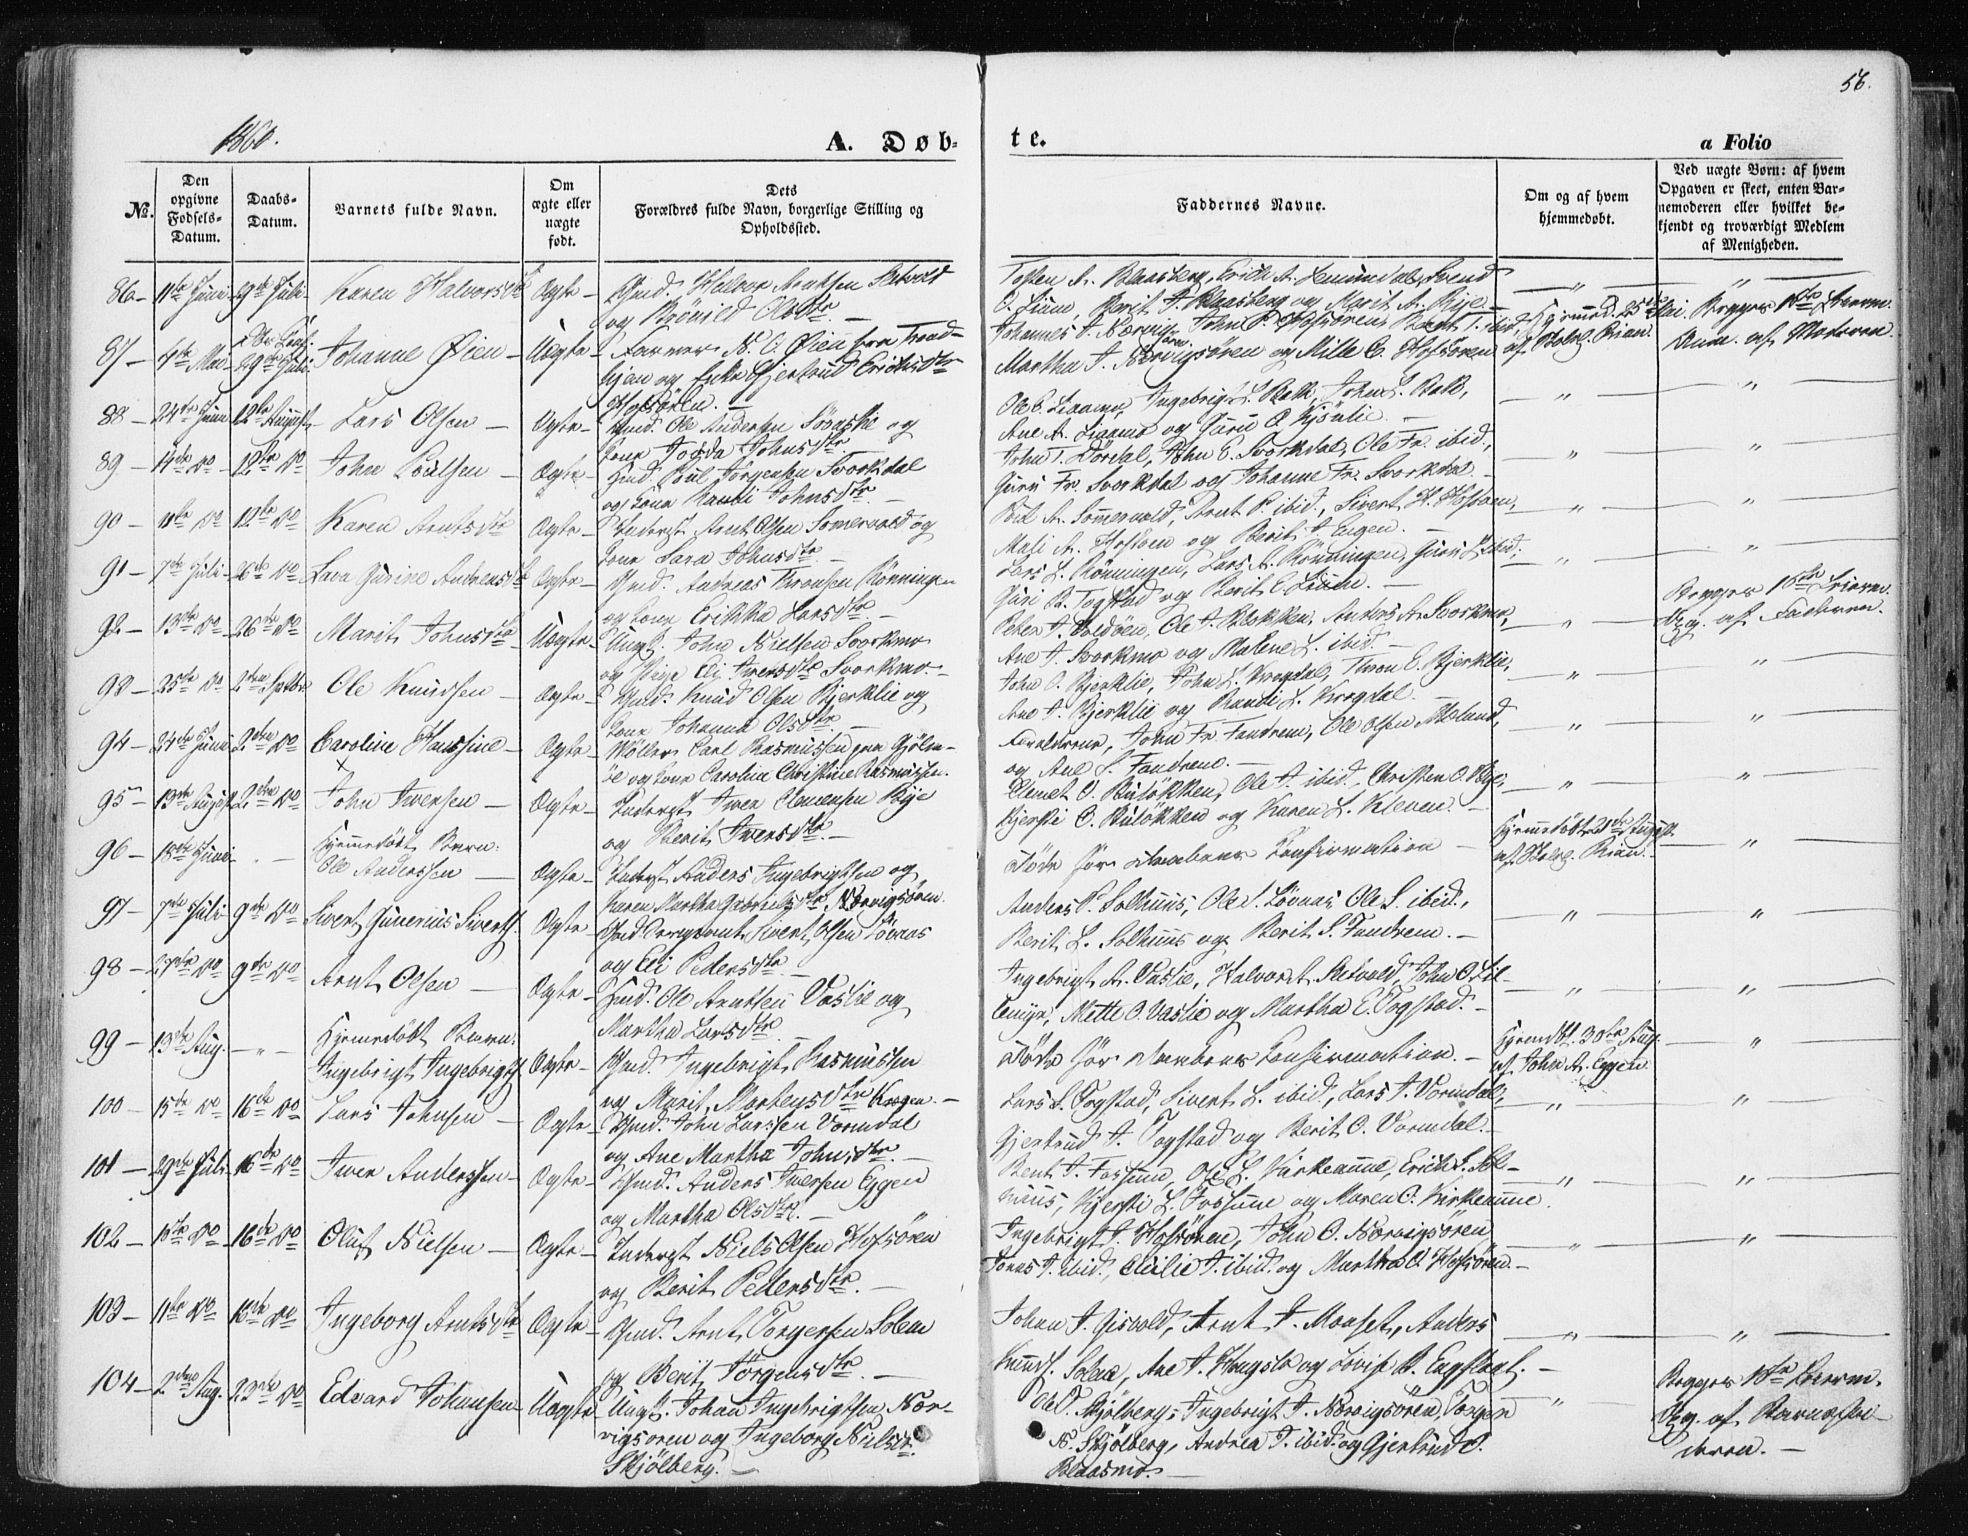 56.
1860.
A. Døb-
te.
a Folio
No.
Den opgivne Fødsels-Datum.
Daabs-Datum.
Barnets fulde Navn.
Om ægte eller uægte født.
Dets Forældres fulde Navn, borgerlige Stilling og Opholdssted.
Faddernes Navne.
Om og af hvem hjemmedøbt.
Ved uægte Børn: af hvem Opgaven er skeet, enten Barnemoderen eller hvilket bekjendt og troværdigt Medlem af Menigheden.
86 – 11te Juni – 29de Juli – Karen Halvorsdtr Ægte – Gmd. Halvor Arntsen Sletvold
og Brönild Olsdtr. –
Tosten A. Blaasberg, Erich A. Svend
E. Lium, Berit T. Blaasberg og Marit A. Rye –
87 – 4de Mai – 29de Juli Johanne Øien – Uægte – Farver N. C. Øien fra Trond-
hjem og Enke Gjertrud Erichsdtr
Hofsören. –
Johannes T. Nervig, John P. Hofsören, Berit T. ibid,
Martha T. Nervigsören og Mille C. Hofsören
Hjemmed. 25de Mai
af Brian.
Begges 1ste Leierm.
Anm. af Moderen.
88 – 24de Juni 12te August Lars Olsen – Ægte – Gmd. Ole Andersen Sövaslie og
Kone Johnsdtr –
Ole C. Liaamo, Ingebrigt L. Bak, John L. Bak,
Ane A. Liaamo og Guru O. Kjönlie. –
89 – 14de do 12te do John Poulsen – Ægte – Gmd. Poul Jörgensen Svorkdal
og Kone Randi Johnsdtr –
John T. Dördal, John E. Svorkdal, Ole Fr. ibid,
Guru Fr. Svorkdal og Johanne Fr. Svorkdal –
90 – 11te do 12te do Karen Arntsdtr Ægte – Inderst Arnt Olsen Somervold og
Kone Sara Johnsdtr –
Poul A. Sommervold, Arnt P. ibid, Sivert H. Hofsöen,
Mali A. Hofsöen og Berit T. Engen. –
91 – 7de Juli – 26de do Lava Gurine Andreasdtr Ægte – Gmd. Andreas Tronsen Rönningen
og Kone Erikka Larsdtr –
Lars L. Rönningen, Lars A. Rönningen, Guru L. ibid,
Guri B. Togstad og Berit E. Lium. –
92 – 13de do 26de do Marit Johnsdtr Uægte – Ungk. John Nielsen Svorkmo
og Pige Eli Iversdtr Svorkmo –
Peter T. Voldöen, Ole T. Blokken, Anders A. Svorkmo,
Ane T. Svorkmo og Malene L. ibid –
Begges 1ste Leierm.
Opg. af Faderen.
93 – 25de do 2den Septbr Ole Knudsen – Ægte – Gmd. Knud Olsen Bjerklie og
Kone Johanna Olsdtr –
John O. Bjerklie, John L. Krogdal, Thron E. Bjerklie,
Ane T. Bjerklie og Randi L. Krogdal. –
94 – 24de Juni 2den do Caroline Hansine – Ægte – Möller Carl Rasmussen paa Gjölm-
e og Kone Caroline Christine Rasmussen.
Forældrene, John Fr. Fandrem, Ole Olsen Moland,
og Ane S. Fandrem. –
95 – 13de August 2den do John Iversen – Ægte – Inderst Iver Clemensen Rye
og Berit Iversdtr –
Clemet O. Rulökken, Ole T. ibid, Christen O. Rye,
Kjersti O. Rulökken og Karen L. Kleven. –
96 – 18de Juni – „ – Hjemmedöbt Barn:
Ole Anderssen – Ægte – Inderst Anders Ingebrigtsen og
Karen Martha Gabrielsdtr, Nervigsören.
Döde för Daabens Confirmation –
Hjemmedöbt 21de August
af Brian.
97 – 7de Juli – 9de do Sivert Gunerius Sivertss. Ægte – Gmd. Sergeant Sivert Olsen Lövaas
og Eli Pedersdtr –
Anders P. Solhuus, Ole S. Lövaas, Ole S. ibid,
Berit L. Solhuus og Berit S. Fandrem. –
98 – 27de do 9de do Arnt Olsen – Ægte – Gmd. Ole Arntsen Vaslie og
Martha Larsdtr. –
Ingebrigt A. Vaslie, Halvor A. Sletvold, John O. Lil-
Mette O. Vaslie og Martha E. Togstad. –
99 – 13de Aug. – „ – Hjemmedöbt Barn:
Ingebrigt Ingebrigtss. Ægte – Gmd. Ingebrigt Rasmussen
og Marit Mortensdtr Krogen. –
Döde för Daabens Confirmation. –
Hjemdbt. 30te Aug.
af John A. Eggen
100 – 15de do 16de do Lars Johnsen – Ægte – Gmd. John Larssen Vormdal
og Ane Martha Johnsdtr. –
Lars S. Togstad, Sivert L. ibid, Lars T. Vormdal,
Gjertrud A. Togstad og Berit O. Vormdal. –
101 – 29de Juli 16de do Iver Anderssen – Ægte – Gmd. Anders Iversen Eggen
og Martha Olsdtr. –
Bent T. Fossum, Ole L. Kirkeaune, Erich S. Sol-
huus, Kjersti L. Fossum og Maren O. Kirkeaune.
102 – 15de do – 16de do Oluf Nielsen – Ægte – Inderst Niels Olsen Hofsören
og Berit Pedersdtr. –
Ingebrigt T. Hofsören, John O. Nervigsören,
Jonas T. ibid, Cecilie T. ibid. og Martha O. Hofsören –
103 – 11te do 16de do Ingeborg Arntsdtr Ægte – Gmd. Arnt Torgersen Solem
og Berit Jörgensdtr. –
Johan T. Gisvold, Arnt T. Monset, Anders
Knuds. Solem, Ane T. Haugslo og Lovise B. Engstagl. –
104 – 2den Aug. 23de do Edvard Johansen – Uægte – Ungk. Johan Ingebrigtsen Ner-
vigsören og Ingeborg Nilsdr.
Skjölberg. –
Ole T. Skjölberg, Ingebrigt T. Nervigsören, Torger
N. Skjölberg, Andrea T. ibid. og Gjertrud O.
Blaasmo. –
Begges 1ste Leierm.
Opg. af Barnefa-
deren. –